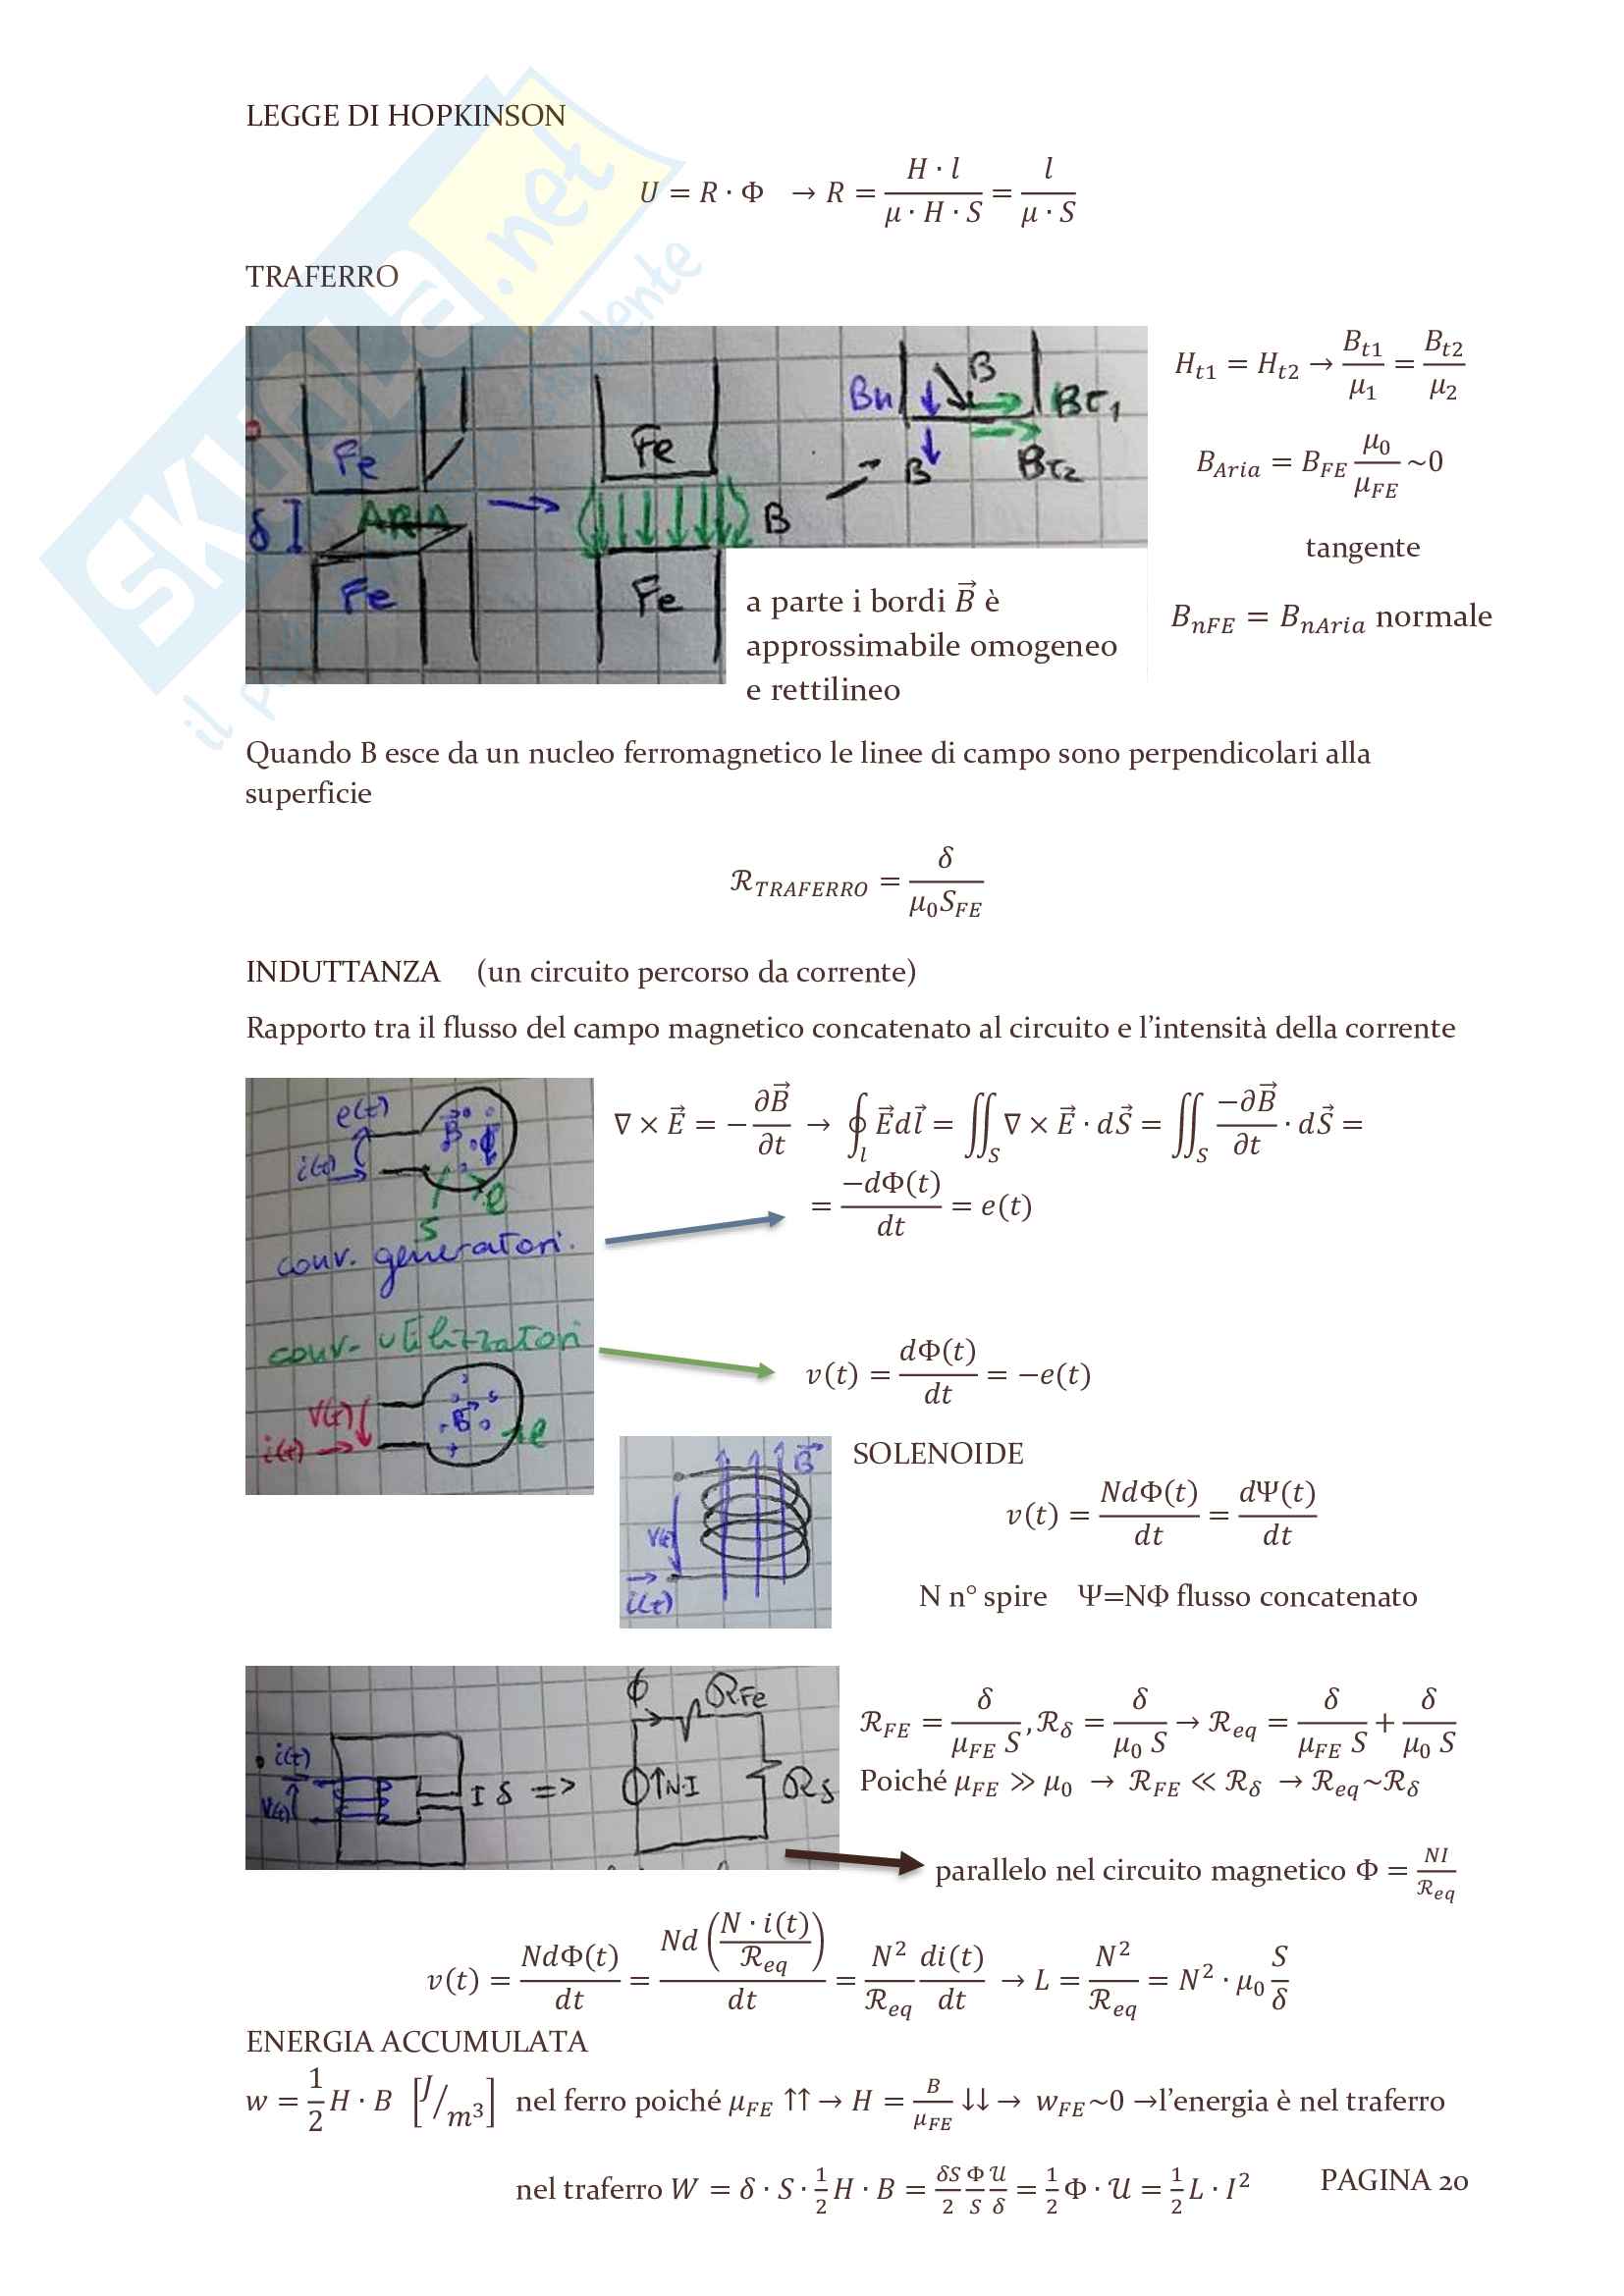 LEGGE DI HOPKINSON
U = R · Φ → R = H · l / μ · H · S = l / μ · S
TRAFERRO
Fe
ARIA
δ I
Fe
Fe
B
Fe
Bn
B
Bt1
B
Bt2
a parte i bordi B⃗ è
approssimabile omogeneo
e rettilineo
H_t1 = H_t2 → B_t1/μ_1 = B_t2/μ_2
B_Aria = B_FE μ_0/μ_FE ~0
tangente
B_nFE = B_nAria normale
Quando B esce da un nucleo ferromagnetico le linee di campo sono perpendicolari alla
superficie
ℛ_TRAFERRO = δ / μ_0 S_FE
INDUTTANZA (un circuito percorso da corrente)
Rapporto tra il flusso del campo magnetico concatenato al circuito e l’intensità della corrente
e(t)
i(t)
B⃗
Φ
S
l
conv. generatori.
conv. utilizzatori
v(t)
i(t)
B⃗
l
∇ × E⃗ = − ∂B⃗/∂t → ∮_l E⃗dl⃗ = ∬_S ∇ × E⃗ · dS⃗ = ∬_S −∂B⃗/∂t · dS⃗ =
= −dΦ(t)/dt = e(t)
v(t) = dΦ(t)/dt = −e(t)
B⃗
v(t)
i(t)
SOLENOIDE
v(t) = NdΦ(t)/dt = dΨ(t)/dt
N n° spire Ψ=NΦ flusso concatenato
i(t)
v(t)
I δ =>
Φ
ℛFe
↑N·I
ℛδ
ℛ_FE = δ/μ_FE S , ℛ_δ = δ/μ_0 S → ℛ_eq = δ/μ_FE S + δ/μ_0 S
Poiché μ_FE ≫ μ_0 → ℛ_FE ≪ ℛ_δ → ℛ_eq~ℛ_δ
parallelo nel circuito magnetico Φ = NI/ℛ_eq
v(t) = NdΦ(t)/dt = Nd(N · i(t)/ℛ_eq)/dt = N²/ℛ_eq di(t)/dt → L = N²/ℛ_eq = N² · μ_0 S/δ
ENERGIA ACCUMULATA
w = 1/2 H · B [J/m³] nel ferro poiché μ_FE ↑↑ → H = B/μ_FE ↓↓ → w_FE~0 →l’energia è nel traferro
nel traferro W = δ · S · 1/2 H · B = δS/2 Φ/S 𝒰/δ = 1/2 Φ · 𝒰 = 1/2 L · I² PAGINA 20
SKUOLA.net